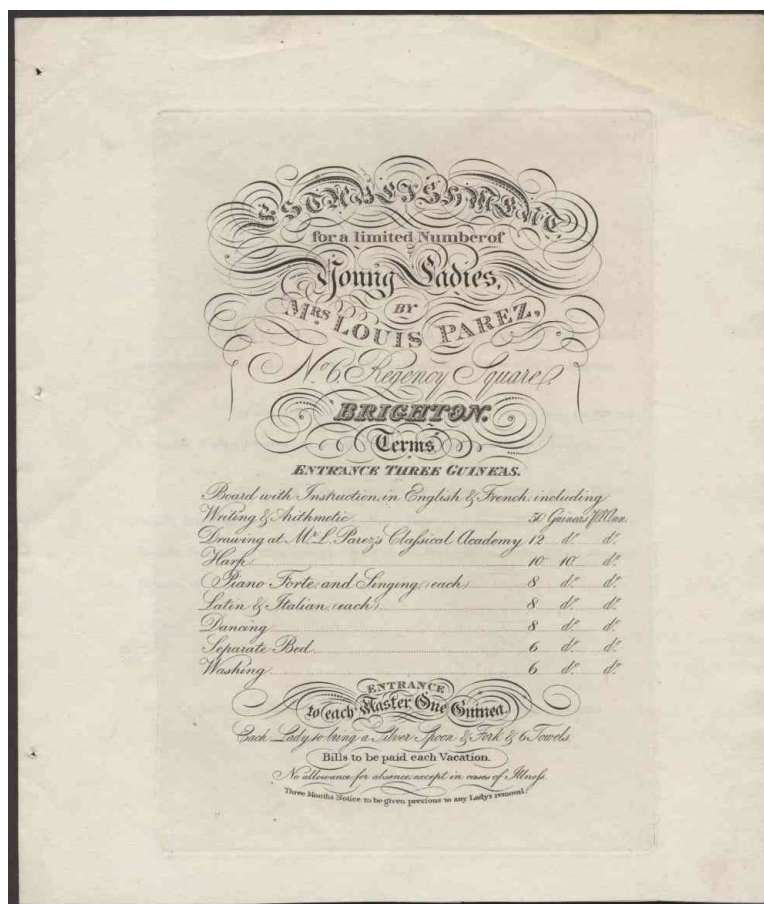 ESTABLISHMENT,
for a limited Number of
Young Ladies,
BY
MRS. LOUIS PAREZ,
No. 6, Regency Square,
BRIGHTON.
Terms
ENTRANCE THREE GUINEAS.
Board with Instruction in English & French including
Writing & Arithmetic 50 Guineas Pr. Ann.
Drawing at Mr. L. Parez's Claſsical Academy 12 do. do.
Harp 10 10 do.
Piano Forte and Singing (each) 8 do. do.
Latin & Italian (each) 8 do. do.
Dancing 8 do. do.
Separate Bed 6 do. do.
Washing 6 do. do.
ENTRANCE
to each Master One Guinea.
Each Lady to bring a Silver Spoon & Fork & 6 Towels.
Bills to be paid each Vacation.
No allowance for absence except in cases of Illneſs.
Three Months Notice to be given previous to any Lady's removal.